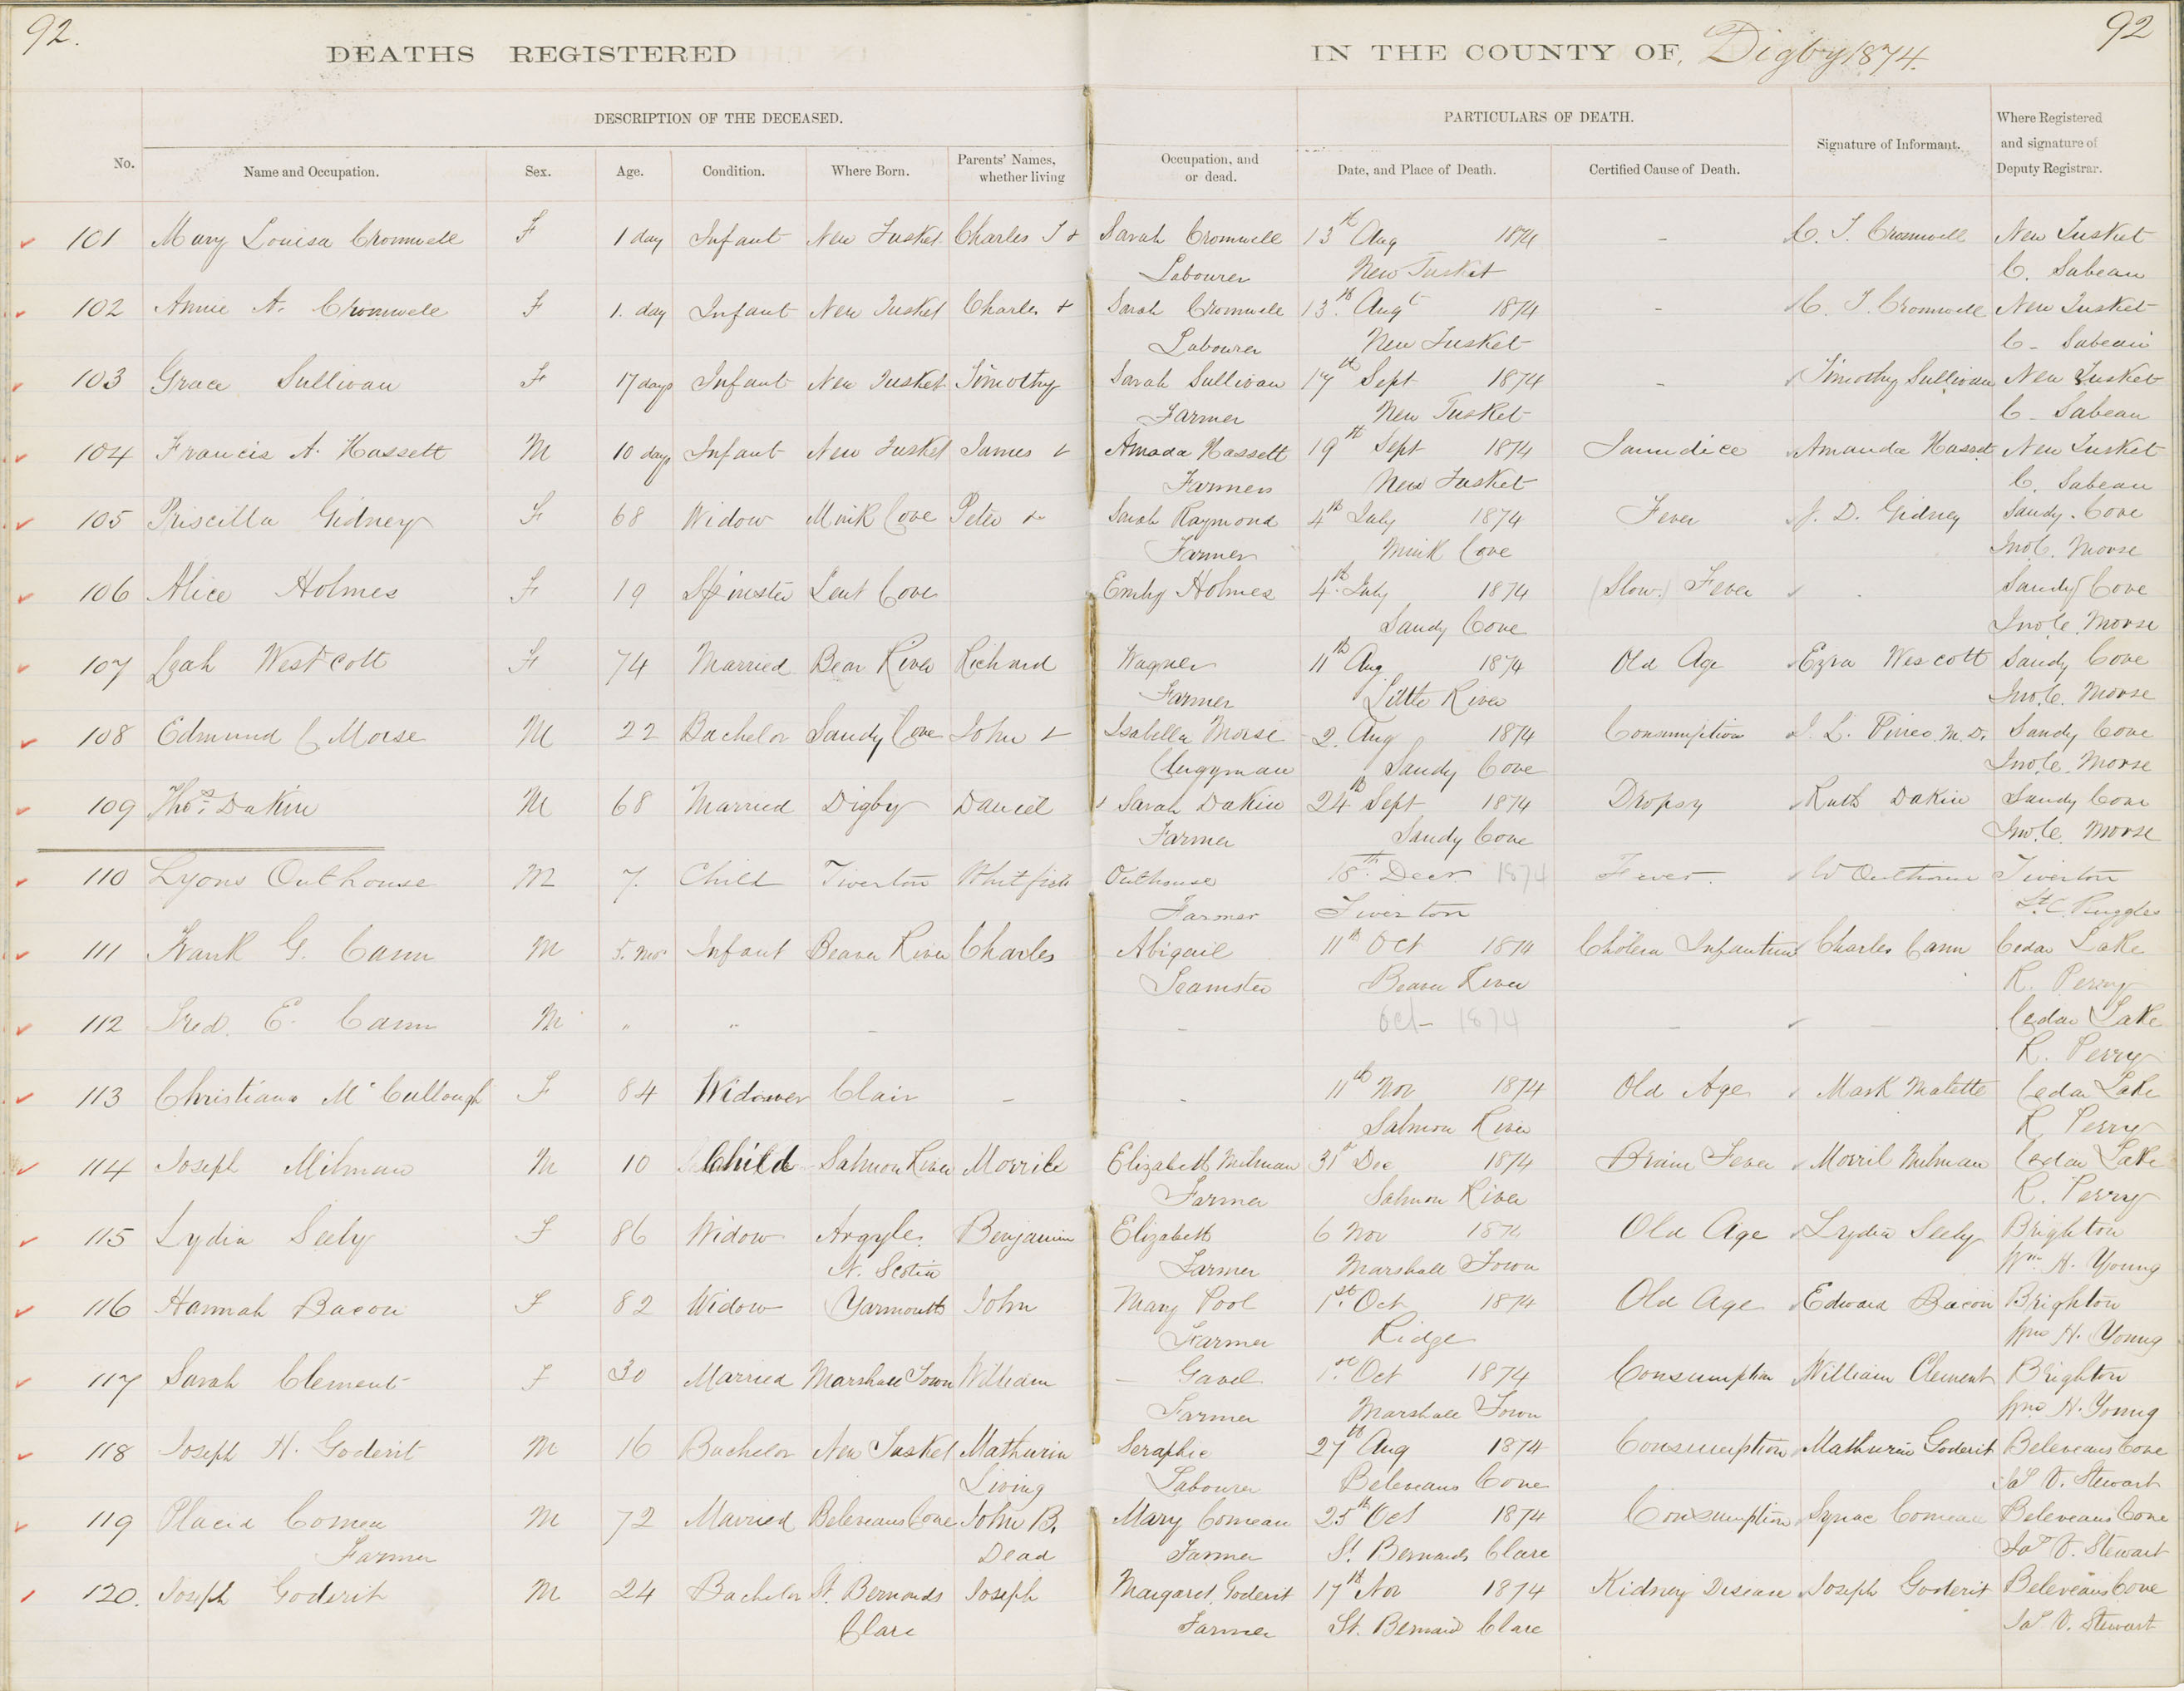 92.
92
DEATHS REGISTERED IN THE COUNTY OF, Digby 1874.
DESCRIPTION OF THE DECEASED. PARTICULARS OF DEATH.
No. Name and Occupation. Sex. Age. Condition. Where Born. Parents' Names, whether living Occupation, and or dead. Date, and Place of Death. Certified Cause of Death. Signature of Informant. Where Registered and signature of Deputy Registrar.
101 Mary Louisa Cromwell F 1 day Infant New Tusket Charles T + Sarah Cromwell 13th Aug 1874 - C. T. Cromwell New Tusket
Labourer New Tusket C. Sabean
102 Annie A. Cromwell F 1. day Infant New Tusket Charles + Sarah Cromwell 13th Augt 1874 - C. T. Cromwell New Tusket
Labourer New Tusket C- Sabean
103 Grace Sullivan F 17 days Infant New Tusket Timothy Sarah Sullivan 17th Sept 1874 - Timothy Sullivan New Tusket
Farmer New Tusket C- Sabean
104 Francis A. Hassett M 10 days Infant New Tusket James + Amada Hassett 19th Sept 1874 Jaundice Amanda Hassett New Tusket
Farmer New Tusket C. Sabean
105 Priscilla Gidney F 68 Widow Mink Cove Peter + Sarah Raymond 4th July 1874 Fever J. D. Gidney Sandy Cove
Farmer Mink Cove Jno C. Morse
106 Alice Holmes F 19 Spinster Cove Emily Holmes 4th July 1874 (Slow) Fever Sandy Cove
Sandy Cove Jno C. Morse
107 Leah Westcott F 74 Married Bear River Richard Wagner 11th Aug 1874 Old Age Ezra Wescott Sandy Cove
Farmer Little River Jno. C. Morse
108 Edmund C Morse M 22 Bachelor Sandy Cove John + Isabella Morse 2. Aug 1874 Consumption J. L. Pineo M.D. Sandy Cove
Clergyman Sandy Cove Jno C. Morse
109 Thos. Dakin M 68 Married Digby Daniel + Sarah Dakin 24th Sept 1874 Dropsy Ruth Dakin Sandy Cove
Farmer Sandy Cove Jno C. Morse
110 Lyons Outhouse M 7. Child Tiverton Whitfield Outhouse 18th Decr 1874 Fever. W Outhouse Tiverton
Farmer Tiverton St. C. Ruggles
111 Frank G. Cann M 5. mos Infant Beaver River Charles Abigail 11th Oct 1874 Cholera Infantum Charles Cann Cedar Lake
Teamster Beaver River R. Perry
112 Fred. E. Cann M " " - - Oct- 1874 - - Cedar Lake
R. Perry
113 Christiana McCullough F 84 Widower Clair - - 11th Nov 1874 Old Age Mark Malette Cedar Lake
Salmon River R. Perry
114 Joseph Milman M 10 Child Salmon River Morrile Elizabeth Milman 31st Dec 1874 Brain Fever Morril Milman Cedar Lake
Farmer Salmon River R. Perry
115 Lydia Seely F 86 Widow Argyle. Benjamin Elizabeth 6 Nov 1874 Old Age Lydia Seely Brighton
N. Scotia Farmer Marshall Town Wm. H. Young
116 Hannah Bacon F 82 Widow Yarmouth John Mary Pool 1st Oct 1874 Old Age Edward Bacon Brighton
Farmer Ridge Wm H. Young
117 Sarah Clement F 30 Married Marshall Town William - Gavel 1st Oct 1874 Consumption William Clement Brighton
Farmer Marshall Town Wm H. Young
118 Joseph H. Goderit M 16 Bachelor New Tusket Mathurin Seraphie 27th Aug 1874 Consumption Mathurin Goderit Beleveaus Cove
Living Labourer Beleveaus Cove Jas O. Stewart
119 Placid Comeau M 72 Married Beleveaus Cove John B. Mary Comeau 25th Oct 1874 Consumption Comeau Beleveaus Cove
Farmer Dead Farmer St. Bernards Clare Jas O. Stewart
120. Joseph Goderit M 24 Bachelor St. Bernards Joseph Margaret Goderit 17th Nov 1874 Kidney Disease Joseph Goderit Beleveaus Cove
Clare Farmer St. Bernard Clare Jas O. Stewart